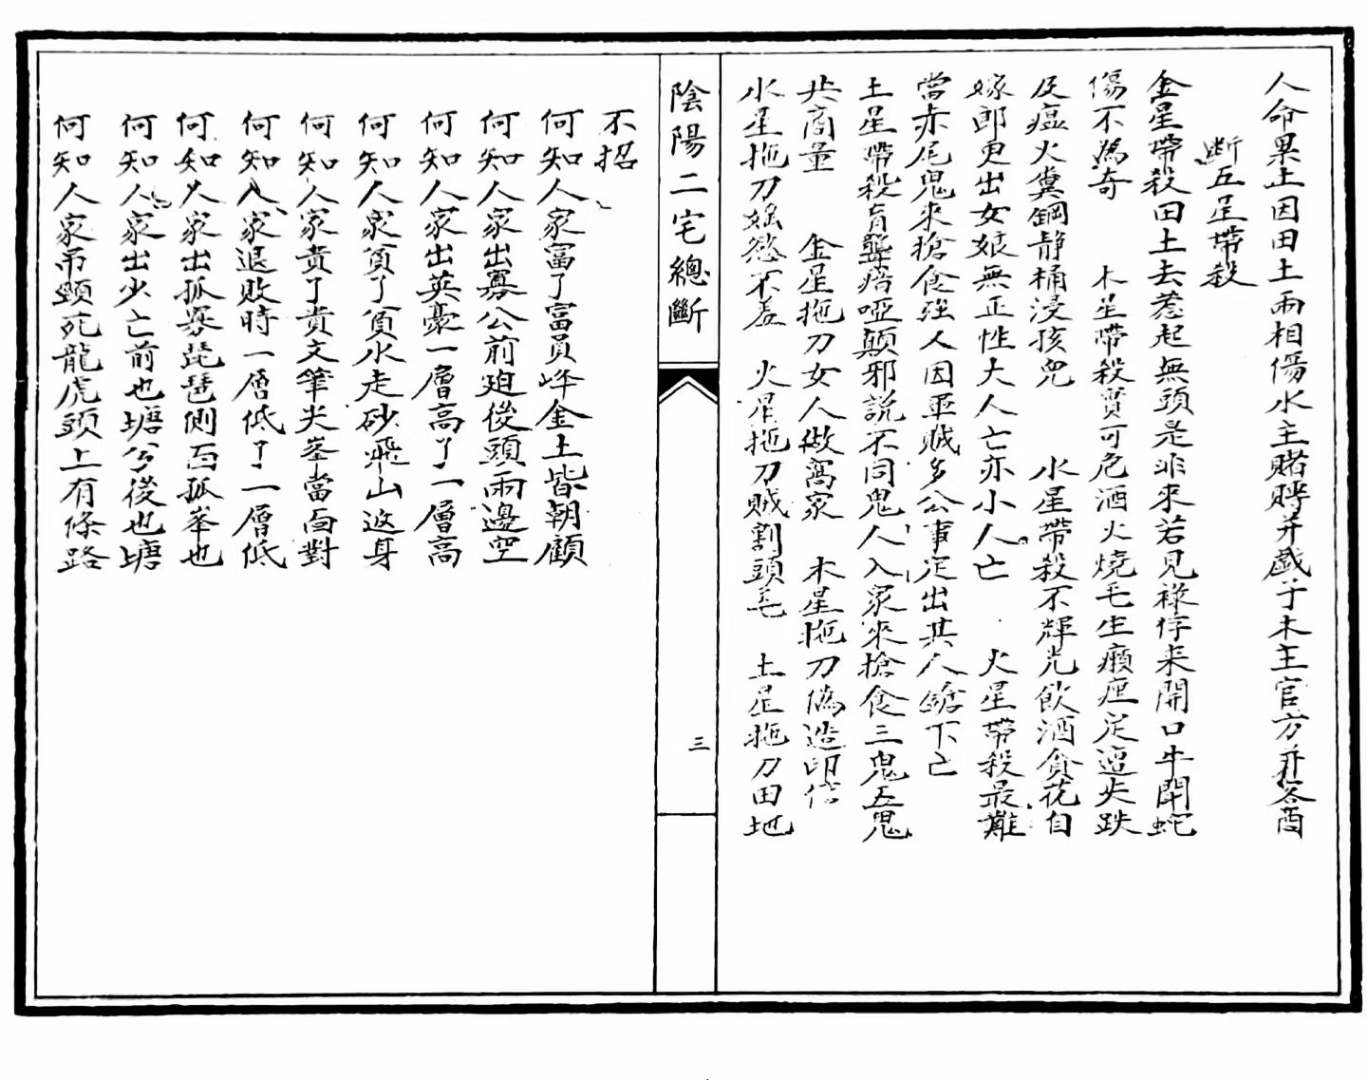 人命果土因田土兩相傷水主賭𧵳并戲子木主官方并各酉
斷五星帶殺
金星帶殺田土去惹起無頭是非來若見祿存来開口牛開蛇
傷不為奇　木星帶殺實可危酒火燒毛生癩疤足這失跌
及瘟火糞鋼靜桶浸孩兒　水星帶殺不輝光飲酒貪花自
嫁郎更出女娘無正性大人亡亦小人亡　火星帶殺最難
當赤尾鬼來搶食強人因巫賊多公事定出其人下亡
土星帶殺盲聾瘖啞顛邪說不同鬼人入家來搶食三鬼五鬼
共商量　金星拖刀女人做窩家　木星拖刀偽造印信
水星拖刀婬慾不羞　火星拖刀賊割頭毛　土星拖刀田地
陰陽二宅總斷
三
不招
何知人家富了富員峰金土皆朝顧
何知人家出寡公前廹後頭兩邊空
何知人家出英豪一層高了一層高
何知人家貧了貧水走砂飛山返身
何知人家貴了貴文筆尖峯當面對
何知人家退敗時一層低了一層低
何知人家出孤寡琵琶側面孤峯也
何知人家出少亡前也塘兮後也塘
何知人家吊頸死龍虎頭上有條路